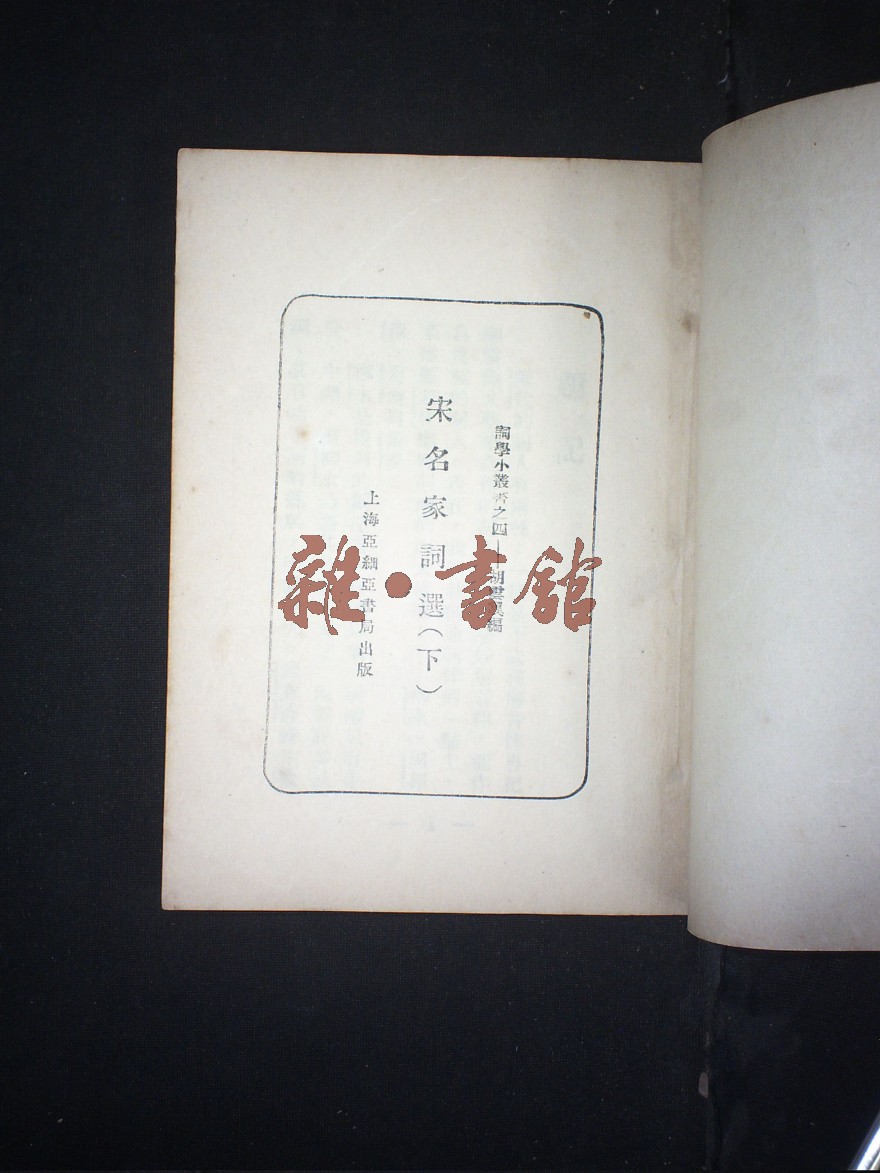 詞學小叢書之四——胡雲翼編
宋名家詞選(下)
上海亞細亞書局出版
雜·書館